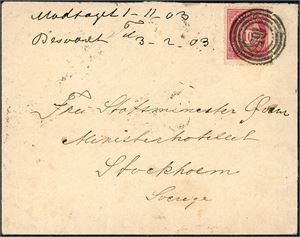 Modtaget 1-11-03
Besvaret d 3-2-03
Fru Statsminister
Ministerhotellet
Stockholm
Sverige